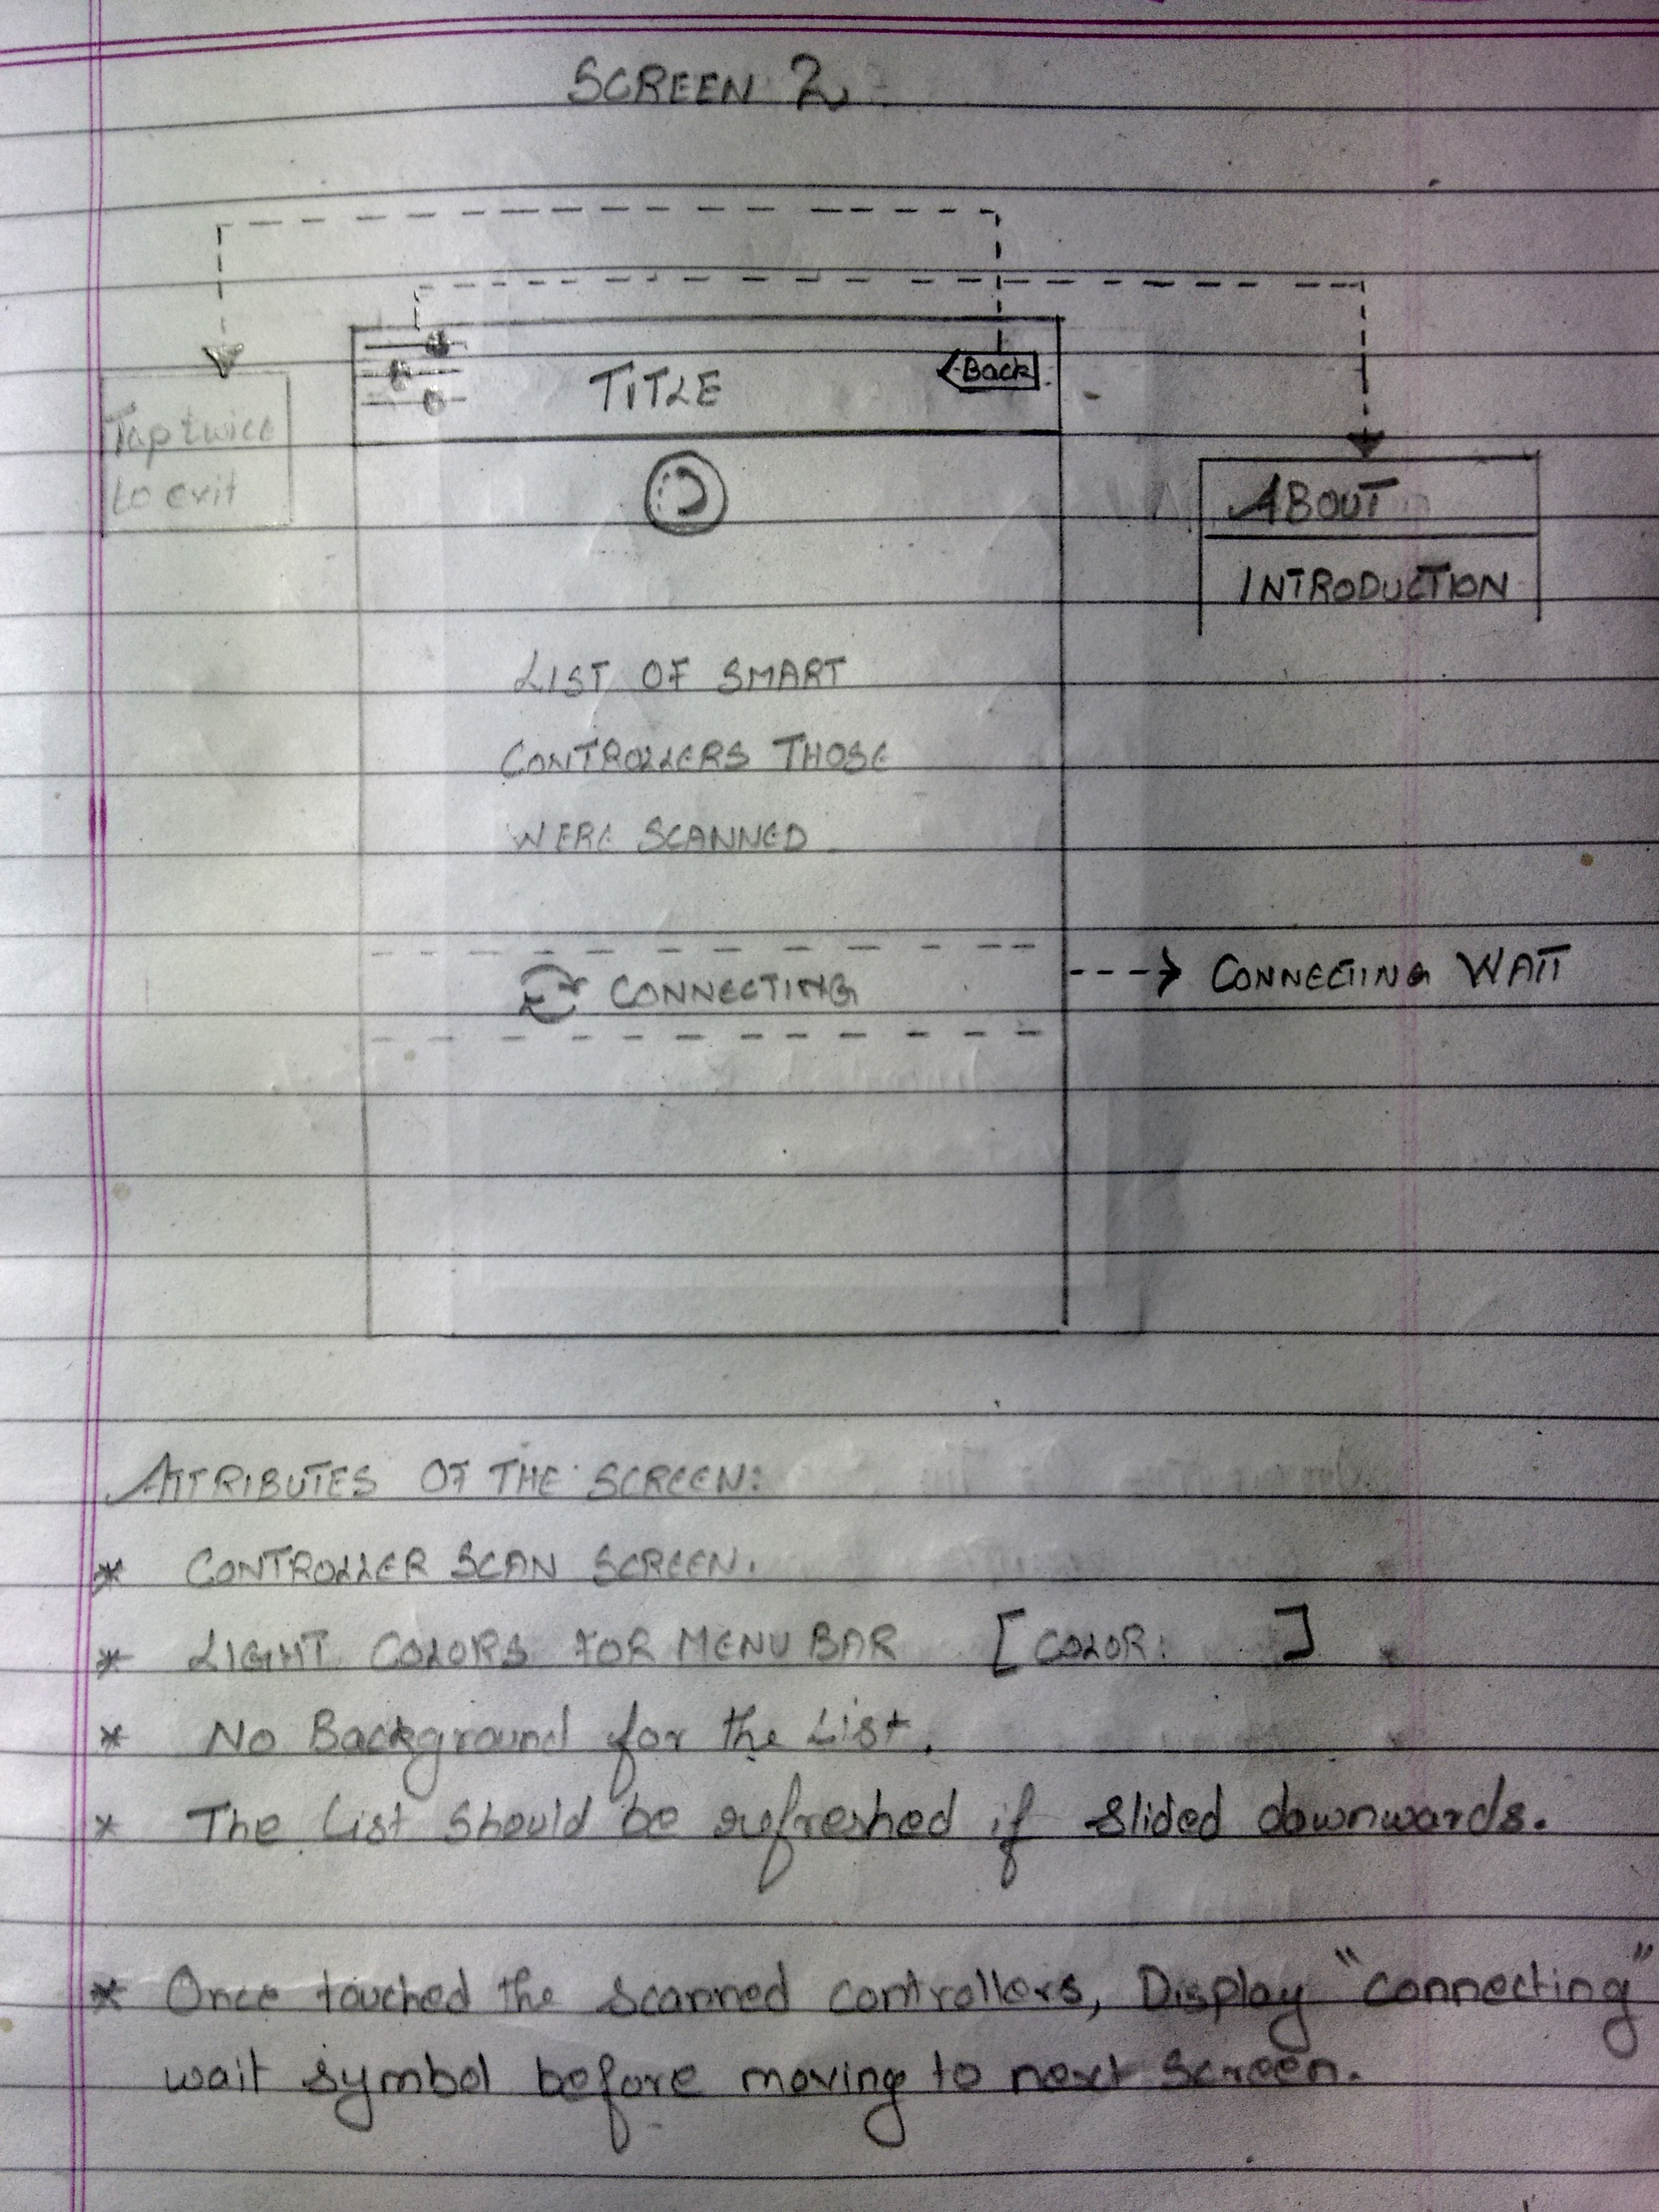 SCREEN 2
TITLE
Back
Tap twice
to exit
ABOUT
INTRODUCTION
LIST OF SMART
CONTROLLERS THOSE
WERE SCANNED
CONNECTING
CONNECTING WAIT
ATTRIBUTES OF THE SCREEN:
* CONTROLLER SCAN SCREEN.
* LIGHT COLORS FOR MENU BAR [COLOR: ]
* No Background for the List.
* The List should be refreshed if slided downwards.
* Once touched the scanned controllers, Display "connecting"
wait symbol before moving to next screen.